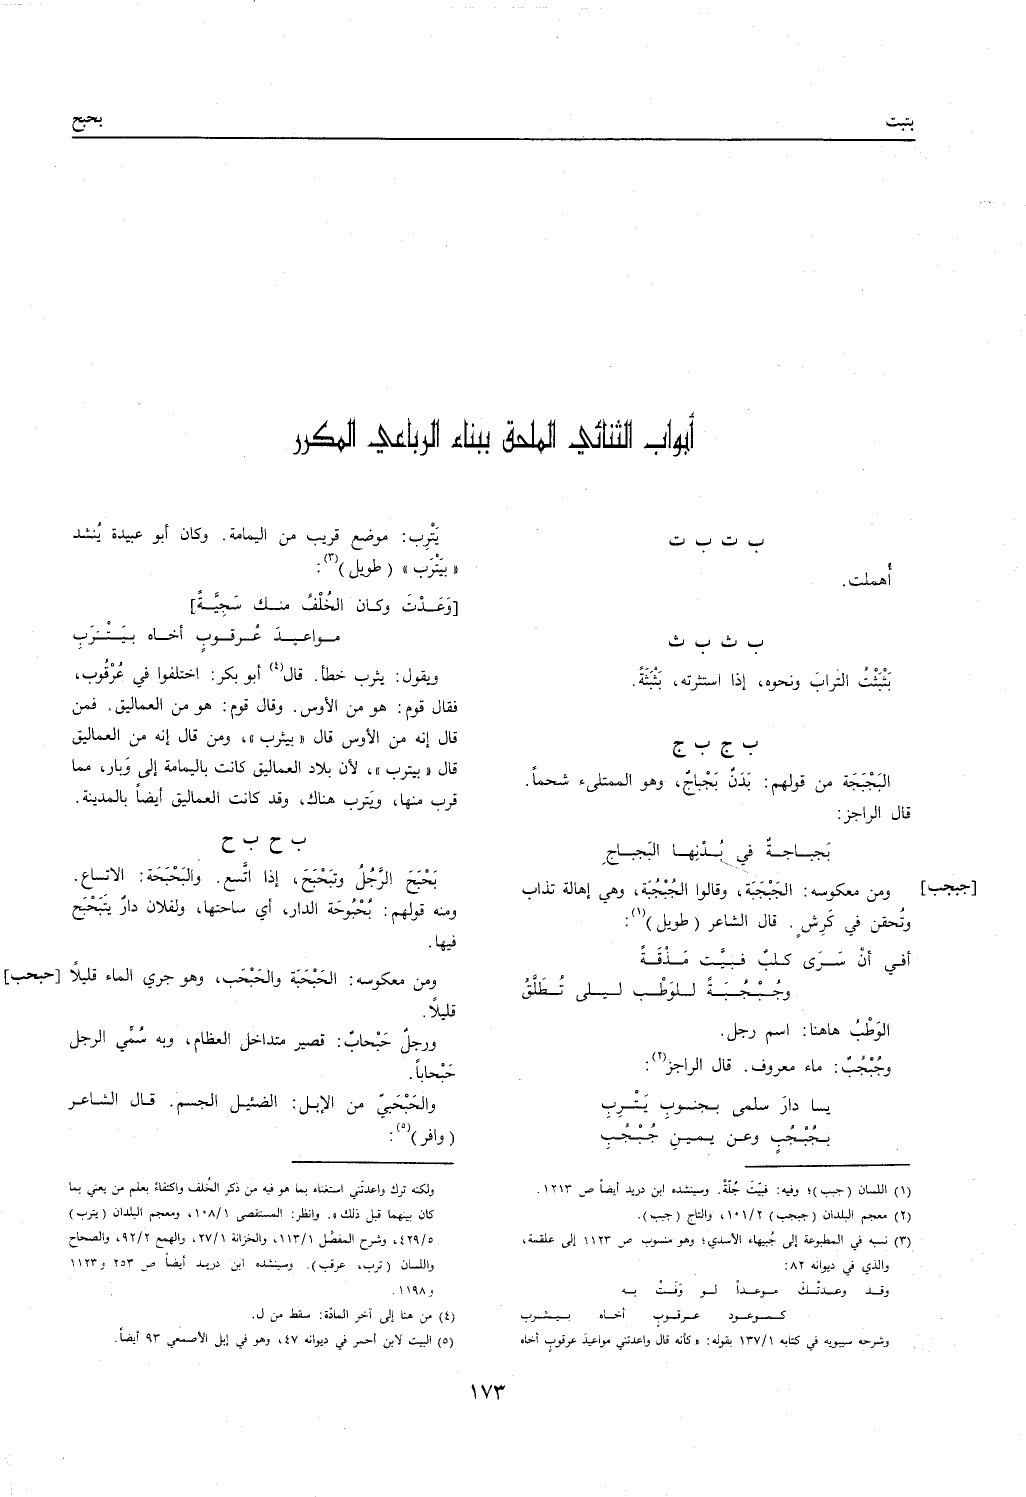 بتبت
بحبح
أبواب الثنائي الملحق ببناء الرباعي المكرر
ب ت ب ت
أُهملت.
ب ث ب ث
بَثْبَثْتُ الترابَ ونحوه، إذا استثرته، بَثْبَثَةً.
ب ج ب ج
البَجْبَجَة من قولهم: بَدَنٌ بَجْباجٌ، وهو الممتلىء شحماً.
قال الراجز:
بَجباجةٌ في بُدْنِها البَجباجِ
[جبجب] ومن معكوسه: الجَبْجَبَة، وقالوا الجُبْجُبَة، وهي إهالة تذاب
وتُحقن في كَرِش. قال الشاعر (طويل)(١):
أفي أنْ سَرَى كلبٌ فبيَّت مَذْقَةً
وجُبْجُبَةً للوَطْب ليلى تُطَلَّقُ
الوَطْبُ هاهنا: اسم رجل.
وجُبْجُبٌ: ماء معروف. قال الراجز(٢):
يا دارَ سلمى بجنوبِ يَتْرِبِ
بجُبْجُبٍ وعن يمينِ جُبْجُبِ
(١) اللسان (جبب)؛ وفيه: فبيّت جُلّةً. وسينشده ابن دريد أيضاً ص ١٢١٣.
(٢) معجم البلدان (جبجب) ١٠١/٢، والتاج (جبب).
(٣) نسبه في المطبوعة إلى جُبيهاء الأسدي؛ وهو منسوب ص ١١٢٣ إلى علقمة،
والذي في ديوانه ٨٢:
وقد وعدتْك موعداً لو وَفَتْ به
كموعود عرقوبٍ أخاه بيثرب
وشرحه سيبويه في كتابه ١٣٧/١ بقوله: «كأنه قال واعدتني مواعيدَ عرقوبٍ أخاه
يَتْرِب: موضع قريب من اليمامة. وكان أبو عبيدة يُنشد
«بيَتْرَب» (طويل)(٣):
[وَعَدْتَ وكان الخُلْفُ منك سَجِيَّةً]
مواعيدَ عُرقوبٍ أخاه بيَتْرَبِ
ويقول: يثرب خطأ. قال(٤) أبو بكر: اختلفوا في عُرْقُوب،
فقال قوم: هو من الأوس. وقال قوم: هو من العماليق. فمن
قال إنه من الأوس قال «بيثرب»، ومن قال إنه من العماليق
قال «بيترب»، لأن بلاد العماليق كانت باليمامة إلى وَبار، مما
قرب منها، ويَترب هناك، وقد كانت العماليق أيضاً بالمدينة.
ب ح ب ح
بَحْبَحَ الرَّجُلُ وتَبَحْبَحَ، إذا اتَّسع. والبَحْبَحَة: الاتساع.
ومنه قولهم: بُحْبُوحَة الدار، أي ساحتها، ولفلان دارٌ يَتَبَحْبَح
فيها.
ومن معكوسه: الحَبْحَبَة والحَبْحَب، وهو جري الماء قليلاً [حبحب]
قليلاً.
ورجلٌ حَبْحابٌ: قصير متداخل العظام، وبه سُمِّي الرجل
حَبْحاباً.
والحَبْحَبيّ من الإبل: الضئيل الجسم. قال الشاعر
(وافر)(٥):
ولكنه ترك واعدتَني استغناء بما هو فيه من ذكر الخُلف واكتفاءً بعلم من يعني بما
كان بينهما قبل ذلك». وانظر: المستقصى ١٠٨/١، ومعجم البلدان (يترب)
٤٢٩/٥، وشرح المفصَّل ١١٣/١، والخزانة ٢٧/١، والهمع ٩٢/٢، والصحاح
واللسان (ترب، عرقب). وسينشده ابن دريد أيضاً ص ٢٥٣ و ١١٢٣
و ١١٩٨.
(٤) من هنا إلى آخر المادّة: سقط من ل.
(٥) البيت لابن أحمر في ديوانه ٤٧، وهو في إبل الأصمعي ٩٣ أيضاً.
١٧٣